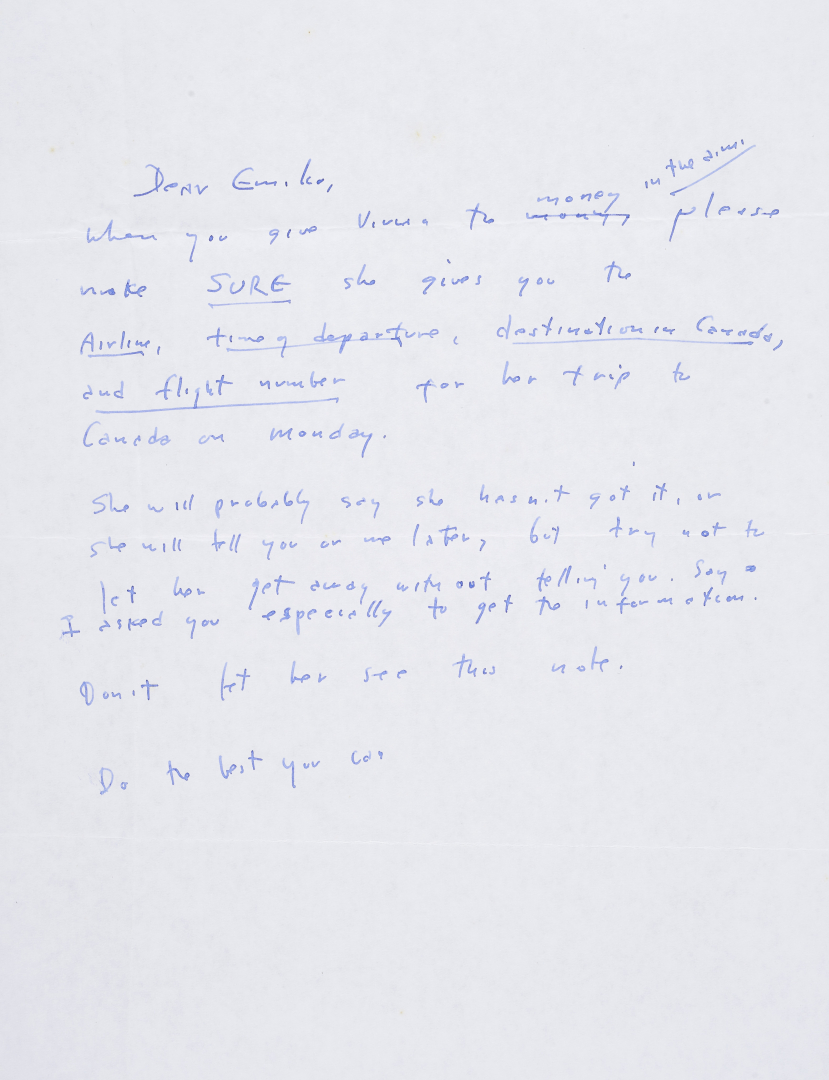 Dear Emiko,
When you give Vivian the money, in the a.m. please
make SURE she gives you the
Airline, time of departure, destination in Canada,
and flight number for her trip to
Canada on Monday.
She will probably say she hasn't got it, or
she will tell you or me later, but try not to
let her get away without tellin' you. Say
I asked you especially to get the information.
Don't let her see this note.
Do the best you can